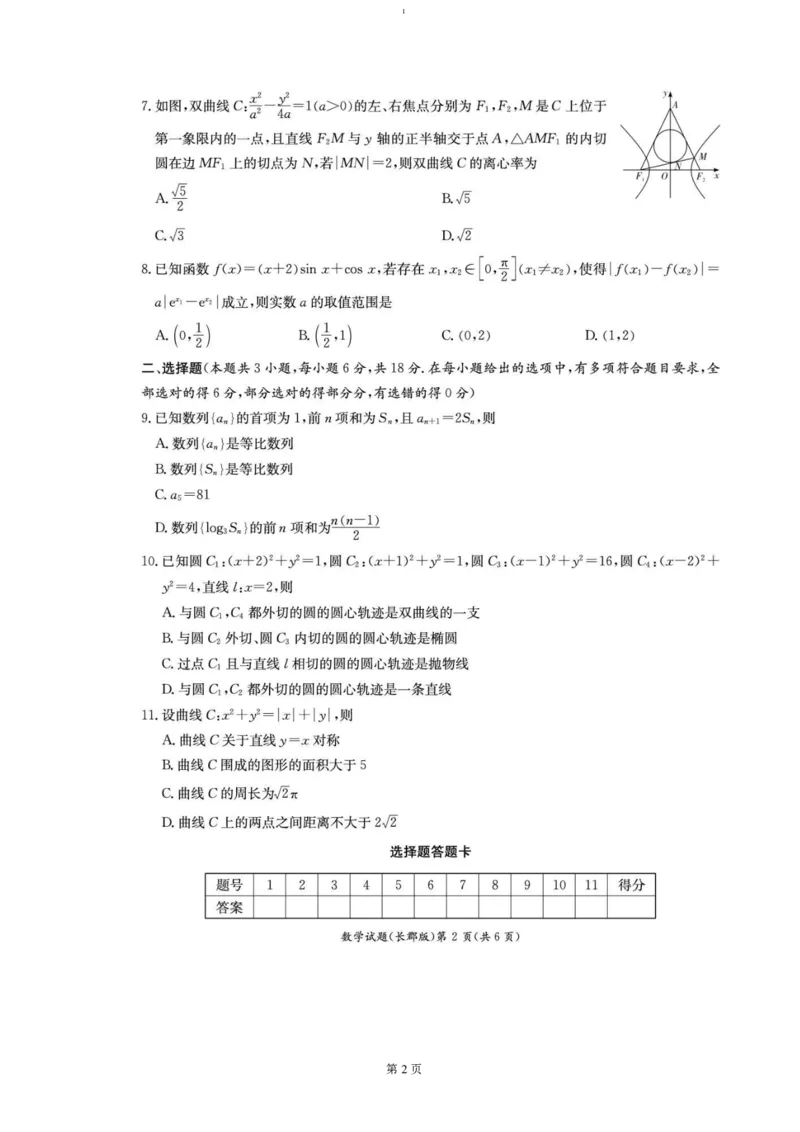 7.如图,双曲线C:x²/a²-y²/4a=1(a>0)的左、右焦点分别为F₁,F₂,M是C上位于
第一象限内的一点,且直线F₂M与y轴的正半轴交于点A,△AMF₁的内切
圆在边MF₁上的切点为N,若|MN|=2,则双曲线C的离心率为
y A M N F₁ O F₂ x
A.√5/2 B.√5
C.√3 D.√2
8.已知函数f(x)=(x+2)sin x+cos x,若存在x₁,x₂∈[0,π/2](x₁≠x₂),使得|f(x₁)-f(x₂)|=
a|eˣ¹-eˣ²|成立,则实数a的取值范围是
A.(0,1/2) B.(1/2,1) C.(0,2) D.(1,2)
二、选择题(本题共3小题,每小题6分,共18分.在每小题给出的选项中,有多项符合题目要求,全
部选对的得6分,部分选对的得部分分,有选错的得0分)
9.已知数列{aₙ}的首项为1,前n项和为Sₙ,且aₙ₊₁=2Sₙ,则
A.数列{aₙ}是等比数列
B.数列{Sₙ}是等比数列
C.a₅=81
D.数列{log₃Sₙ}的前n项和为n(n-1)/2
10.已知圆C₁:(x+2)²+y²=1,圆C₂:(x+1)²+y²=1,圆C₃:(x-1)²+y²=16,圆C₄:(x-2)²+
y²=4,直线l:x=2,则
A.与圆C₁,C₄都外切的圆的圆心轨迹是双曲线的一支
B.与圆C₂外切、圆C₃内切的圆的圆心轨迹是椭圆
C.过点C₁且与直线l相切的圆的圆心轨迹是抛物线
D.与圆C₁,C₂都外切的圆的圆心轨迹是一条直线
11.设曲线C:x²+y²=|x|+|y|,则
A.曲线C关于直线y=x对称
B.曲线C围成的图形的面积大于5
C.曲线C的周长为√2π
D.曲线C上的两点之间距离不大于2√2
选择题答题卡
题号 1 2 3 4 5 6 7 8 9 10 11 得分
答案
数学试题(长郡版)第2页(共6页)
第2页